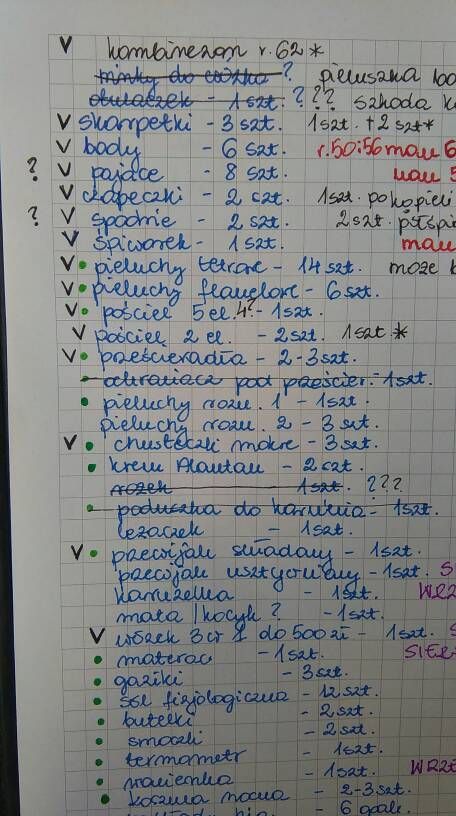 V kombinezon r. 62 *
minky do łóżka? pieluszka
otulaczek - 1 szt. ? ?? szkoda
V skarpetki - 3 szt. 1szt. + 2 szt*
V body - 6 szt. r.50;56 mam 6
? V pajace - 8 szt. mam 5
V czapeczki - 2 szt. 1szt. po kopieli
? V spodnie - 2 szt. 2 szt. półśpi
V śpiworek - 1 szt. mam
V • pieluchy tetrowe - 14 szt. może
V • pieluchy flanelowe - 6 szt.
V • pościel 5 el. 4? - 1szt.
V pościel 2 el. - 2szt. 1szt *
V • prześcieradła - 2-3szt.
• ochraniacz pod prześcier. - 1szt.
• pieluchy rozm. 1 - 1szt.
pieluchy rozm. 2 - 3 szt.
V • chusteczki mokre - 3szt.
• krem Alantan - 2 szt.
rożek 1szt. ???
• poduszka do karmienia - 1szt.
leżaczek - 1szt.
V • przewijak składany - 1szt.
przewijak usztywniany - 1szt.
kamizelka - 1szt. WRZ
mata / kocyk ? - 1szt.
V wózek 3w1 do 500 zł - 1szt.
• materac - 1szt. SIER
• gaziki - 3szt.
• sól fizjologiczna - 12szt.
• butelki - 2szt.
• smoczki - 2szt.
• termometr - 1szt.
• wanienka - 1szt. WRZ
• koszula nocna - 2-3szt.
- 6